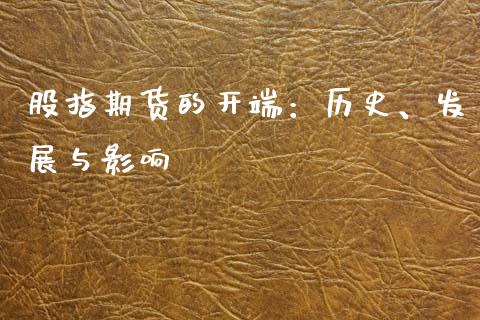 股指期货的开端：历史、发
展与影响